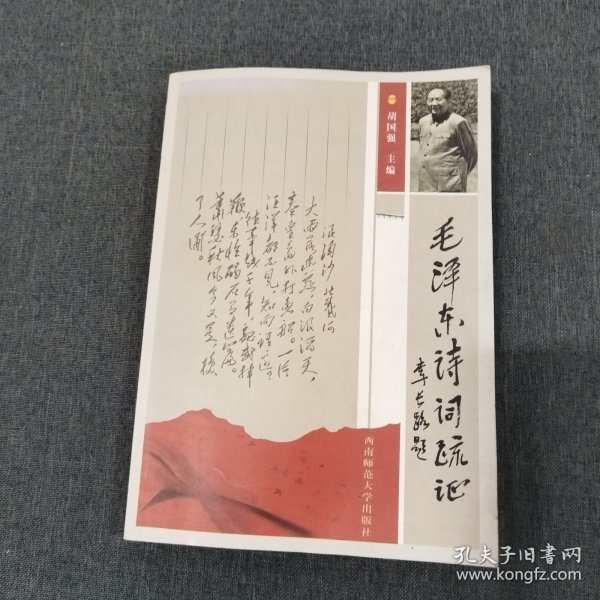 胡国强 主编
毛泽东诗词疏证
李长路题
浪淘沙 北戴河
大雨落幽燕,白浪滔天,
秦皇岛外打鱼船。一片
汪洋都不见,知向谁边?
往事越千年,魏武挥
鞭,东临碣石有遗篇。
萧瑟秋风今又是,换
了人间。
西南师范大学出版社
孔夫子旧书网
www.kongfz.com